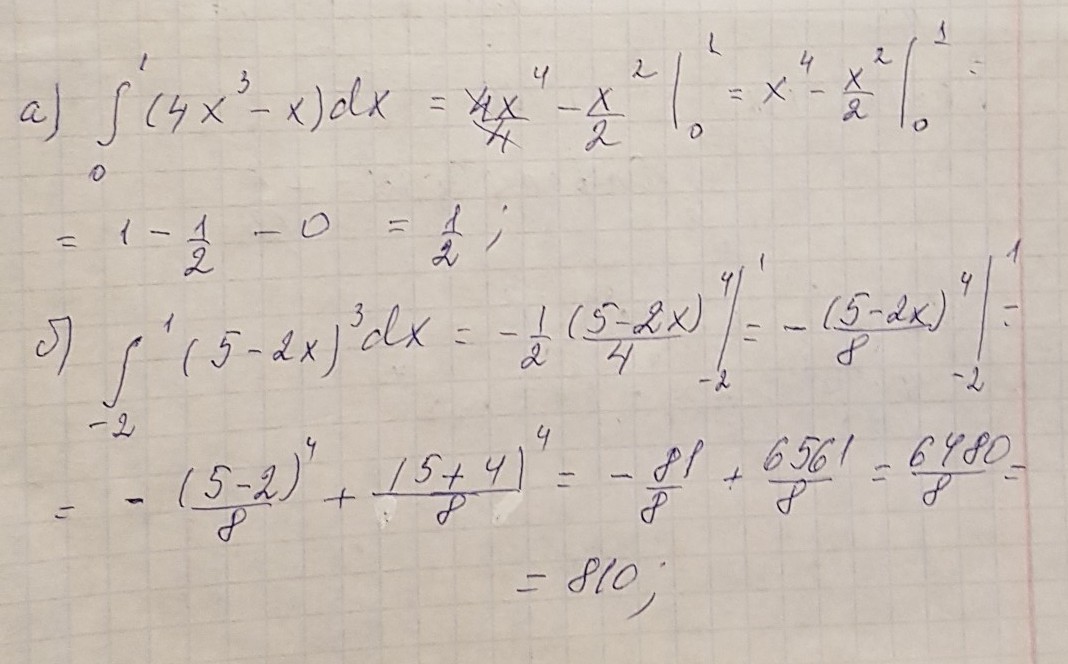 а) ∫₀¹ (4x³ − x)dx = 4x⁴/4 − x²/2 |₀¹ = x⁴ − x²/2 |₀¹ =
= 1 − 1/2 − 0 = 1/2 ;
б) ∫₋₂¹ (5−2x)³dx = −1/2 (5−2x)⁴/4 |₋₂¹ = − (5−2x)⁴/8 |₋₂¹ =
= − (5−2)⁴/8 + (5+4)⁴/8 = − 81/8 + 6561/8 = 6480/8 =
= 810;